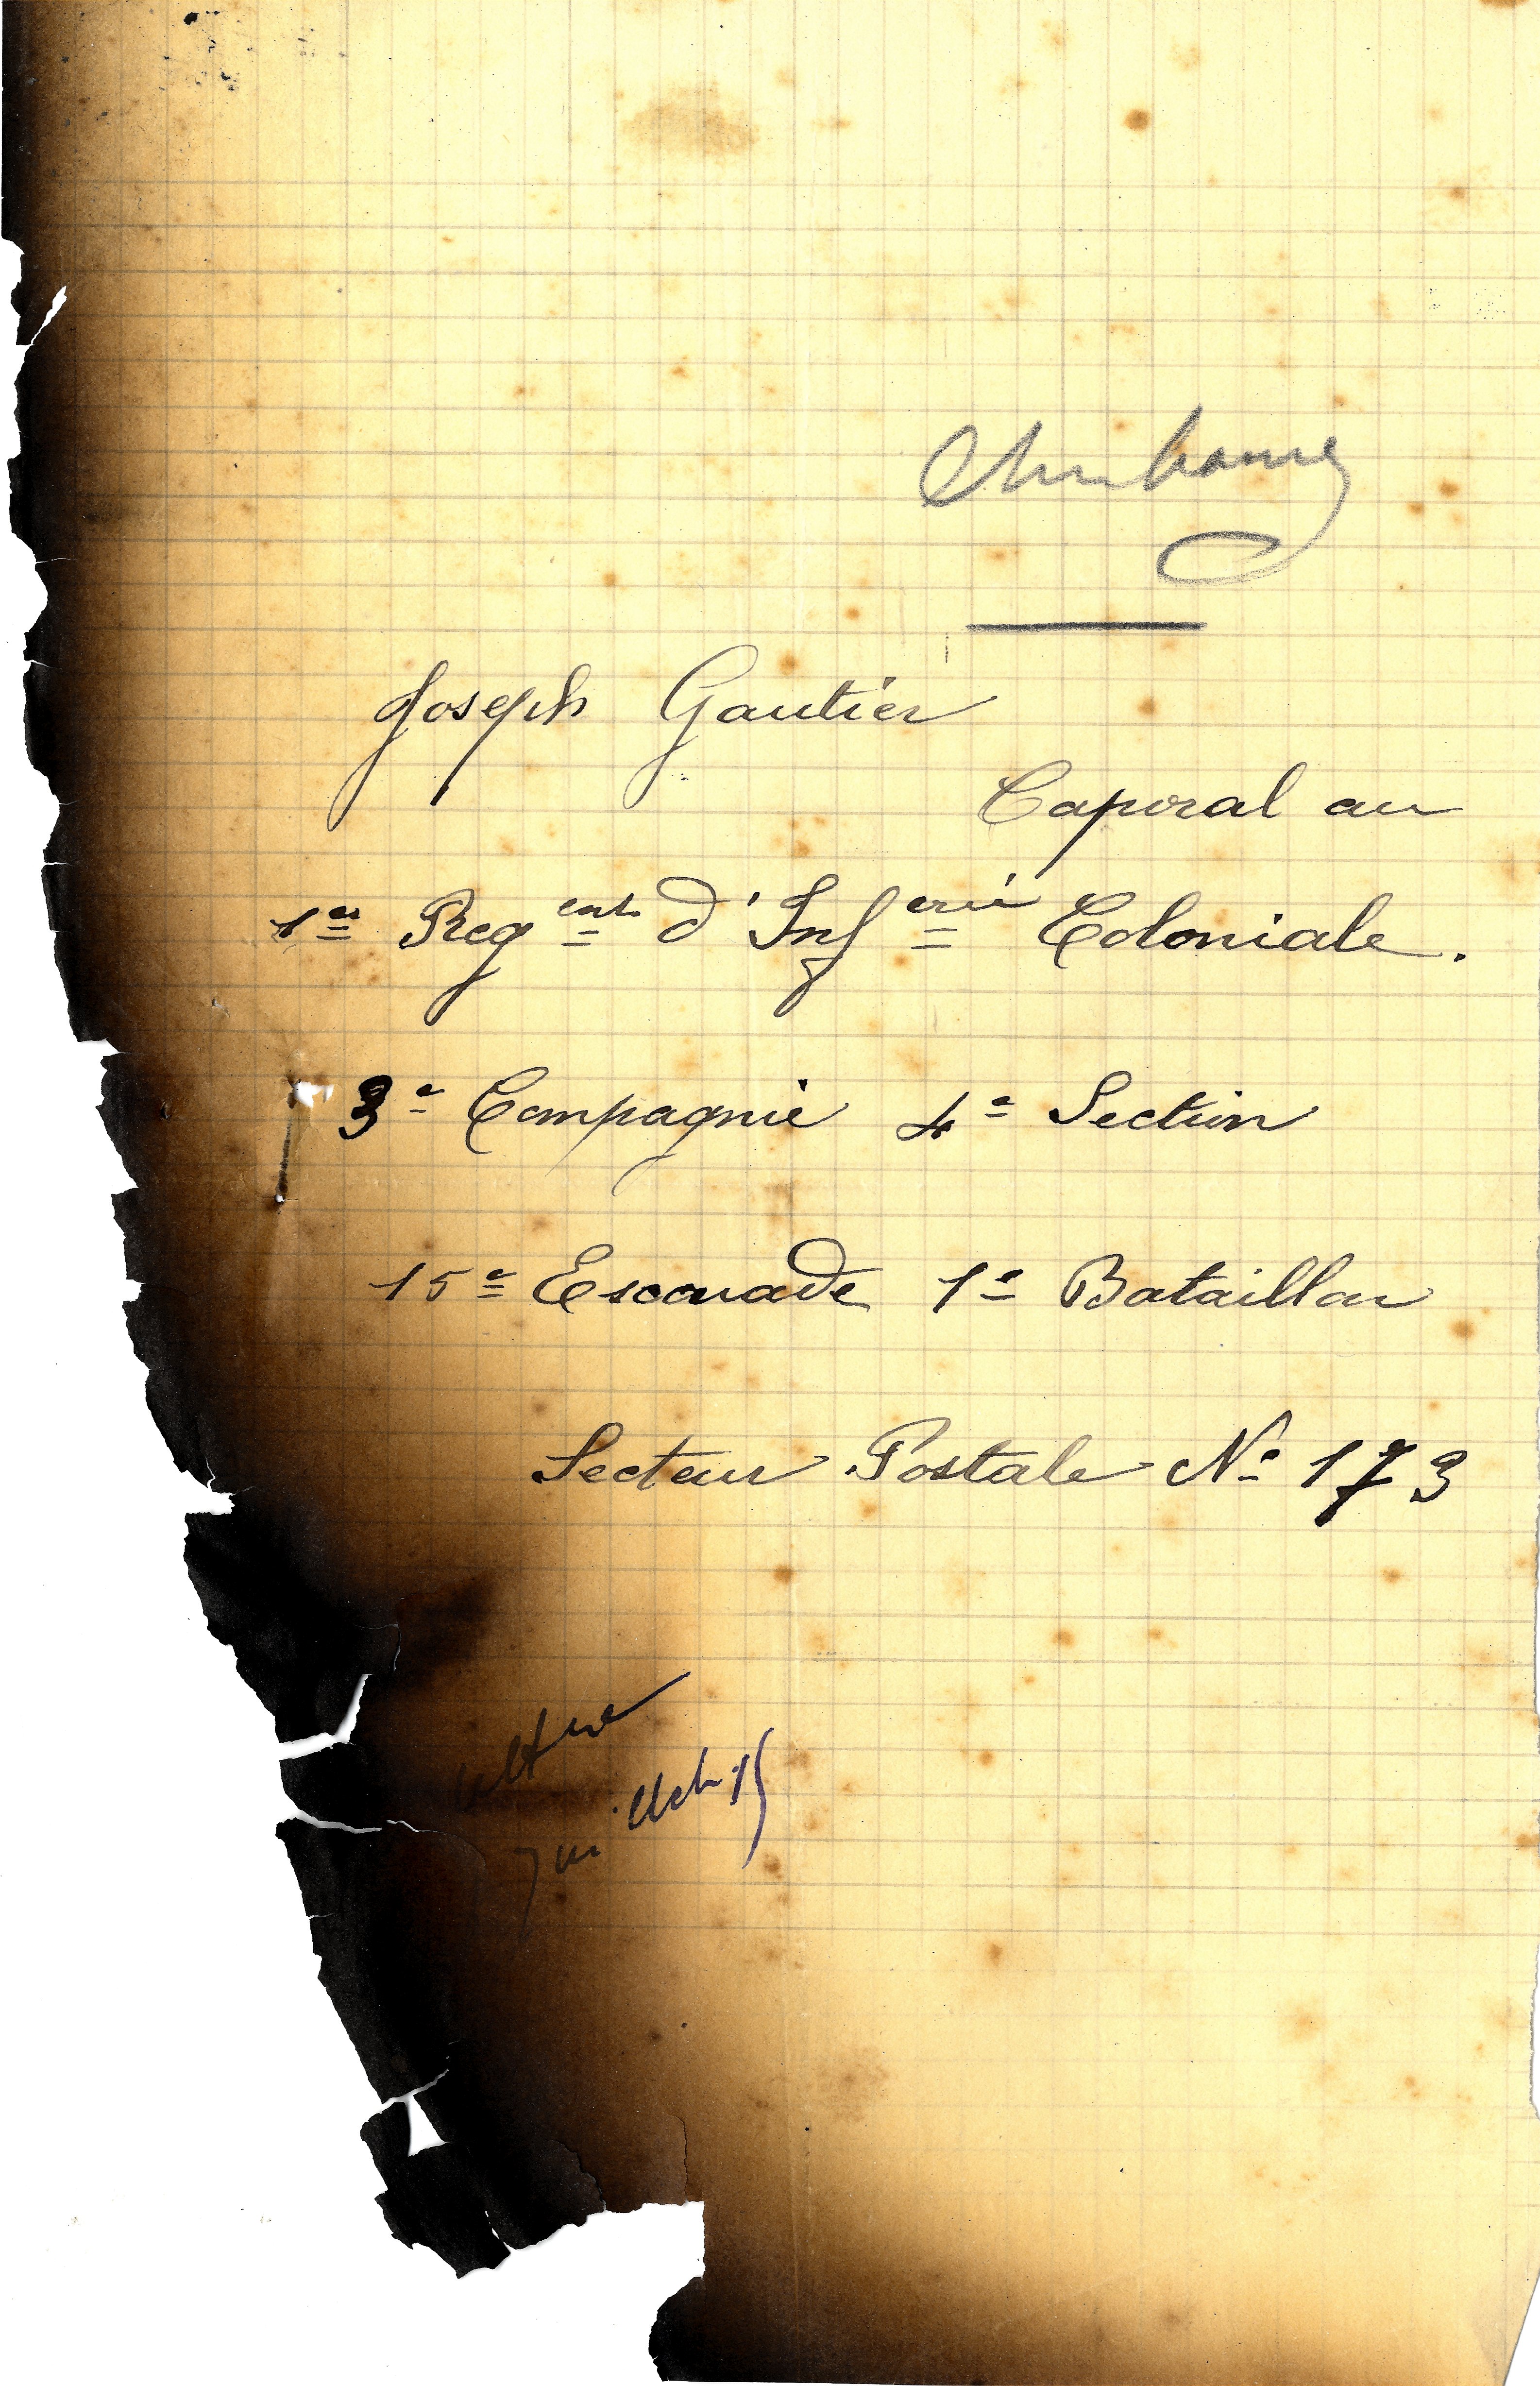 Cherbourg
Joseph Gautier
Caporal au
1er Regent d'Inferie Coloniale.
3e Compagnie 4e Section
15e Escouade 1e Bataillon
Secteur Postale No 173
juillet 15